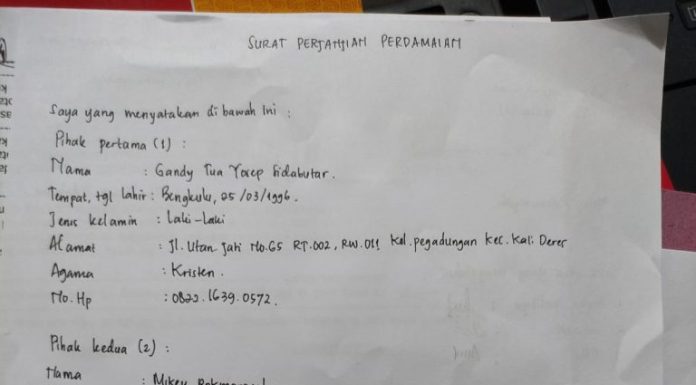 SURAT PERJANJIAN PERDAMAIAN
Saya yang menyatakan di bawah ini :
Pihak pertama (1) :
Nama : Gandy Tua Yosep Sidabutar.
Tempat, tgl lahir : Bengkulu, 25/03/1996.
Jenis kelamin : Laki-Laki
Alamat : Jl. Utan Jati No.65 RT.002, RW.011 Kel. pegadungan Kec. Kali Deres
Agama : Kristen.
No. Hp : 0822.1639.0572.
Pihak kedua (2) :
Nama :